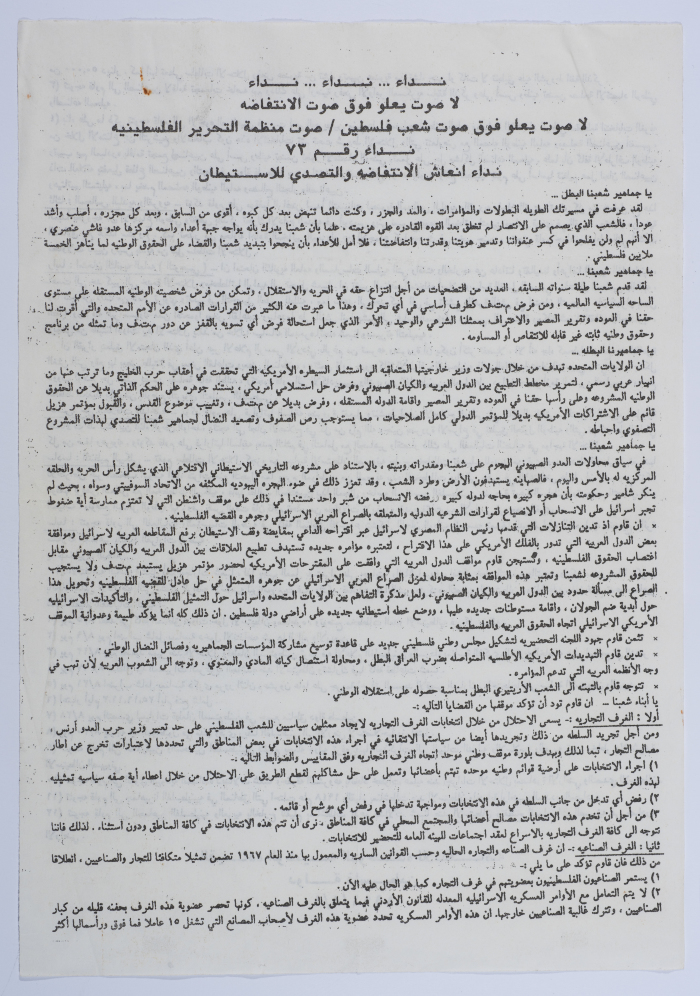 نـداء ... نـداء ... نـداء
لا صوت يعلو فوق صوت الانتفاضه
لا صوت يعلو فوق صوت شعب فلسطين / صوت منظمة التحرير الفلسطينيه
نـداء رقـم ٧٣
نداء انعاش الانتفاضه والتصدي للاستيطان
يا جماهير شعبنا البطل ...
لقد عرفت في مسيرتك الطويله البطولات والمؤامرات ، والمد والجزر ، وكنت دائما تنهض بعد كل كبوه ، أقوى من السابق ، وبعد كل مجزره ، أصلب وأشد
عودا ، فالشعب الذي يصمم على الانتصار لم تخلق بعد القوه القادره على هزيمته . علما بأن شعبنا يدرك بأنه يواجه جبهة أعداء واسعه مركزها عدو فاشي عنصري ،
الا أنهم لم ولن يفلحوا في كسر عنفواننا وتدمير هويتنا وقدرتنا وانتفاضتنا ، فلا أمل للأعداء بأن ينجحوا بتبديد شعبنا والقضاء على الحقوق الوطنيه لما يناهز الخمسة
ملايين فلسطيني .
يا جماهير شعبنا ...
لقد قدم شعبنا طيلة سنواته السابقه ، العديد من التضحيات من أجل انتزاع حقه في الحريه والاستقلال ، وتمكن من فرض شخصيته الوطنيه المستقله على مستوى
الساحه السياسيه العالميه ، ومن فرض م.ت.ف كطرف أساسي في أي تحرك ، وهذا ما عبرت عنه الكثير من القرارات الصادره عن الأمم المتحده والتي أقرت لنا
حقنا في العوده وتقرير المصير والاعتراف بممثلنا الشرعي والوحيد ، الأمر الذي جعل استحالة فرض أي تسويه بالقفز عن دور م.ت.ف وما تمثله من برنامج
وحقوق وطنيه ثابته غير قابله للانتقاص أو المساومه .
يا جماهيرنا البطله ...
ان الولايات المتحده تهدف من خلال جولات وزير خارجيتها المتعاقبه الى استثمار السيطره الأمريكيه التي تحققت في أعقاب حرب الخليج وما ترتب عنها من
انهيار عربي رسمي ، لتمرير مخطط التطبيع بين الدول العربيه والكيان الصهيوني وفرض حل استسلامي أمريكي ، يستند جوهره على الحكم الذاتي بديلا عن الحقوق
الوطنيه المشروعه وعلى رأسها حقنا في العوده وتقرير المصير واقامة الدوله المستقله ، وفرض بديلا عن م.ت.ف ، وتغييب موضوع القدس ، والقبول بمؤتمر هزيل
قائم على الاشتراكات الأمريكيه بديلا للمؤتمر الدولي كامل الصلاحيات ، مما يستوجب رص الصفوف وتصعيد النضال لجماهير شعبنا للتصدي لهذات المشروع
التصفوي واحباطه .
يا جماهير شعبنا ...
في سياق محاولات العدو الصهيوني الهجوم على شعبنا ومقدراته وبنيته ، بالاستناد على مشروعه التاريخي الاستيطاني الاقتلاعي الذي يشكل رأس الحربه والحلقه
المركزيه له بالأمس واليوم ، فالصهاينه يستهدفون الأرض وطرد الشعب ، وقد تعزز ذلك في ضوء الهجره اليهوديه المكثفه من الاتحاد السوفييتي وسواه ، بحيث لم
ينكر شامير وحكومته بأن هجره كبيره بحاجه لدوله كبيره ، رفضه الانسحاب من شبر واحد مستندا في ذلك على موقف واشنطن التي لا تعتزم ممارسة أية ضغوط
تجبر اسرائيل على الانسحاب أو الانصياع لقرارات الشرعيه الدوليه والمتعلقه بالصراع العربي الاسرائيلي وجوهره القضيه الفلسطينيه .
× ان قاوم اذ تدين التنازلات التي قدمها رئيس النظام المصري لاسرائيل عبر اقتراحه الداعي بمقايضة وقف الاستيطان برفع المقاطعه العربيه لاسرائيل وموافقة
بعض الدول العربيه التي تدور بالفلك الأمريكي على هذا الاقتراح ، لتعتبره مؤامره جديده تستهدف تطبيع العلاقات بين الدول العربيه والكيان الصهيوني مقابل
اغتصاب الحقوق الفلسطينيه ، وتستهجن قاوم مواقف الدول العربيه التي وافقت على المقترحات الأمريكيه لحضور مؤتمر هزيل يستبعد م.ت.ف ولا يستجيب
للحقوق المشروعه لشعبنا وتعتبر هذه الموافقه بمثابة محاوله لعزل الصراع العربي الاسرائيلي عن جوهره المتمثل في حل عادل للقضيه الفلسطينيه وتحويل هذا
الصراع الى مسألة حدود بين الدول العربيه والكيان الصهيوني . ولعل مذكرة التفاهم بين الولايات المتحده واسرائيل حول التمثيل الفلسطيني ، والتأكيدات الاسرائيليه
حول أبدية ضم الجولان ، واقامة مستوطنات جديده عليها ، ووضع خطه استيطانيه جديده على أراضي دولة فلسطين . ان ذلك كله انما يؤكد طبيعة وعدوانية الموقف
الأمريكي الاسرائيلي اتجاه الحقوق العربيه والفلسطينيه .
× تثمن قاوم جهود اللجنه التحضيريه لتشكيل مجلس وطني فلسطيني جديد على قاعدة توسيع مشاركة المؤسسات الجماهيريه وفصائل النضال الوطني .
× تدين قاوم التهديدات الأمريكيه الأطلسيه المتواصله بضرب العراق البطل ، ومحاولة استئصال كيانه المادي والمعنوي ، وتوجه الى الشعوب العربيه لأن تهب في
وجه الأنظمه العربيه التي تدعم المؤامره .
× تتوجه قاوم بالتهنئه الى الشعب الأريتيري البطل بمناسبة حصوله على استقلاله الوطني .
يا أبناء شعبنا ... ان قاوم تود أن تؤكد موقفها من القضايا التاليه :-
أولا : الغرف التجاريه :- يسعى الاحتلال من خلال انتخابات الغرف التجاريه لايجاد ممثلين سياسيين للشعب الفلسطيني على حد تعبير وزير حرب العدو أرنس ،
ومن أجل تجريد السلطه من ذلك وتجريدها أيضا من سياستها الانتقائيه في اجراء هذه الانتخابات في بعض المناطق والتي تحددها لاعتبارات تخرج عن اطار
مصالح التجار ، تبعا لذلك وبهدف بلورة موقف وطني موحد اتجاه الغرف التجاريه وفق المقاييس والضوابط التاليه :-
١) اجراء الانتخابات على أرضية قوائم وطنيه موحده تهتم بأعضائها وتعمل على حل مشاكلهم لقطع الطريق على الاحتلال من خلال اعطاء أية صفه سياسيه تمثيليه
لهذه الغرف .
٢) رفض أي تدخل من جانب السلطه في هذه الانتخابات ومواجهة تدخلها في رفض أي مرشح أو قائمه .
٣) من أجل أن تخدم هذه الانتخابات مصالح أعضائها والمجتمع المحلي في كافة المناطق ، نرى أن تتم هذه الانتخابات في كافة المناطق ودون استثناء . لذلك فاننا
نتوجه الى كافة الغرف التجاريه بالاسراع لعقد اجتماعات للهيئه العامه للتحضير للانتخابات .
ثانيا : الغرف الصناعيه :- ان غرف الصناعه والتجاره الحاليه وحسب القوانين الساريه والمعمول بها منذ العام ١٩٦٧ تضمن تمثيلا متكافئا للتجار والصناعيين ، انطلاقا
من ذلك فان قاوم تؤكد على ما يلي :-
١) يستمر الصناعيون الفلسطينيون بعضويتهم في غرف التجاره كما هو الحال عليه الأن .
٢) لا يتم التعامل مع الأوامر العسكريه الاسرائيليه المعدله للقانون الأردني فيما يتعلق بالغرف الصناعيه ، كونها تحصر عضوية هذه الغرف بحفنه قليله من كبار
الصناعيين ، وتترك غالبية الصناعيين خارجها. ان هذه الأوامر العسكريه تحدد عضوية هذه الغرف لأصحاب المصانع التي تشغل ١٥ عاملا فما فوق ورأسمالها أكثر